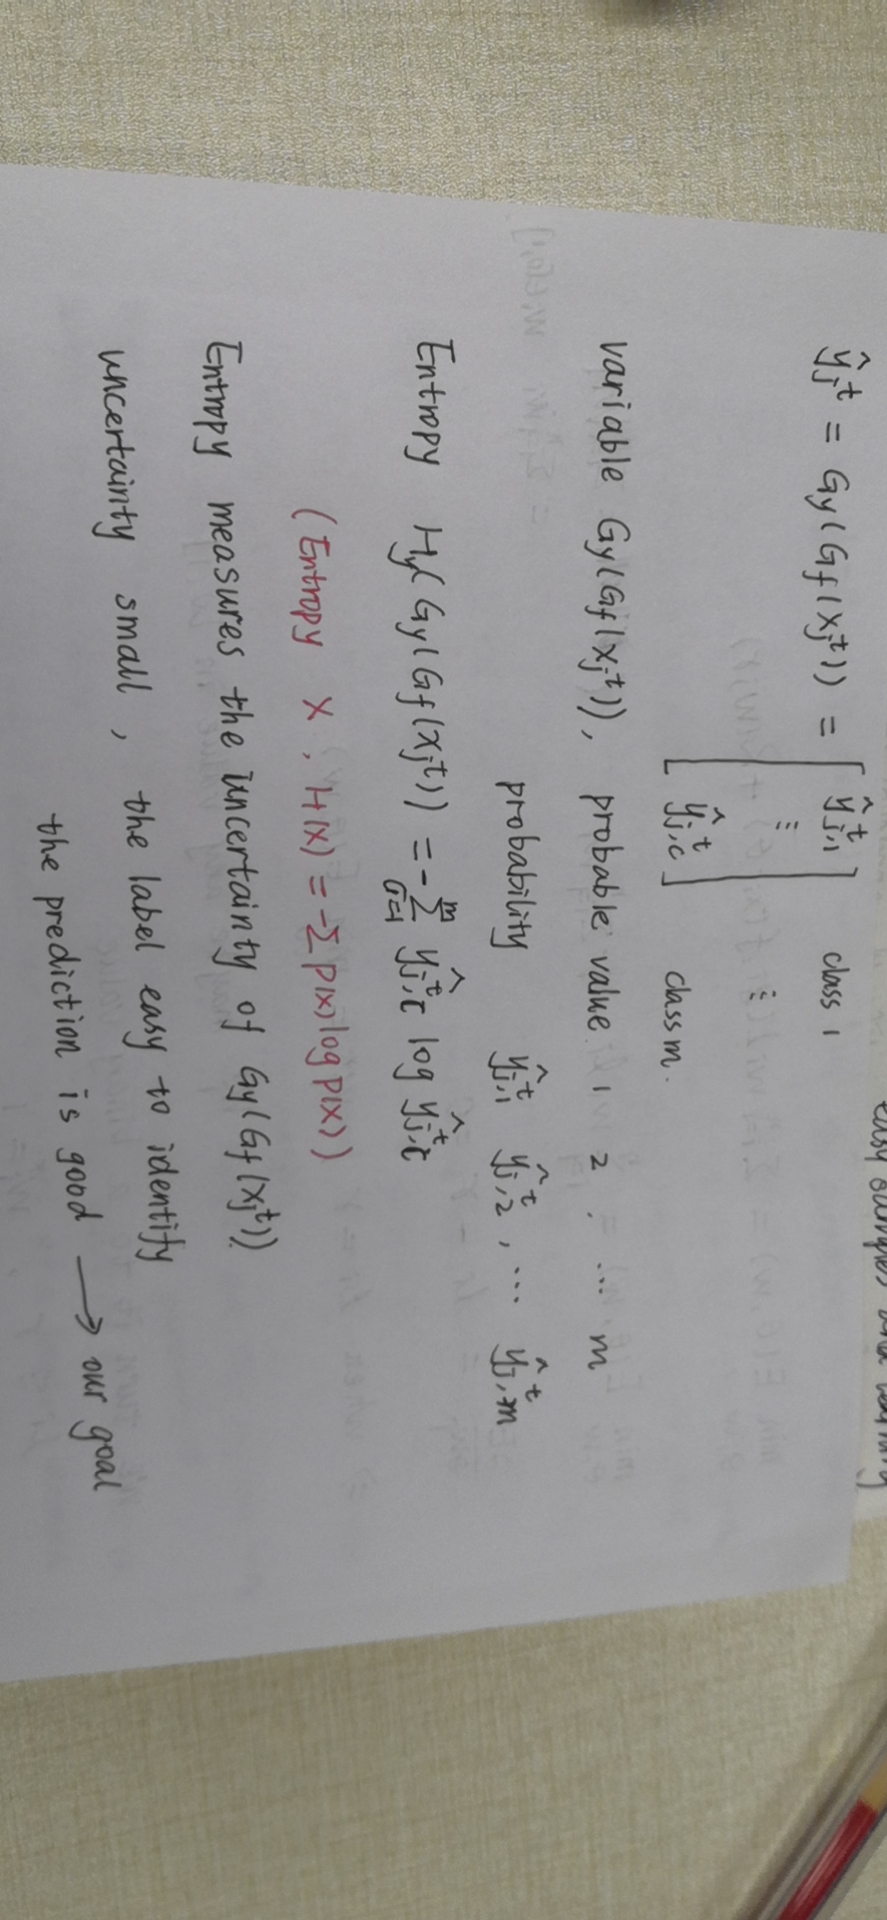 easy samples and
ŷⱼᵗ = Gy(Gf(xⱼᵗ)) = [ŷⱼ,₁ᵗ class 1
⋮ ⋮
ŷⱼ,cᵗ] class m.
variable Gy(Gf(xⱼᵗ)), probable value 1 2 . ... m
probability ŷⱼ,₁ᵗ ŷⱼ,₂ᵗ, ... ŷⱼ,mᵗ
Entropy Hy(Gy(Gf(xⱼᵗ)) = -∑ᵐ ŷⱼ,cᵗ log ŷⱼ,cᵗ
(Entropy X, H(x) = -∑P(x)logP(x))
Entropy measures the uncertainty of Gy(Gf(xⱼᵗ)).
uncertainty small, the label easy to identify
the prediction is good → our goal